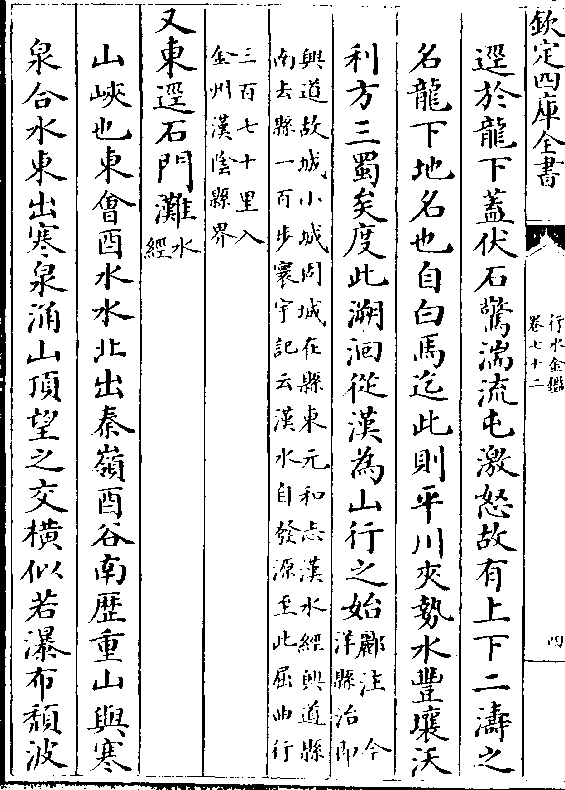 欽定四庫全書
行水金鑑
卷七十二
四
逕於龍下蓋伏石驚湍流屯激怒故有上下二濤之
名龍下地名也自白馬迄此則平川夾勢水豐壤沃
利方三蜀矣度此溯洄從漢為山行之始酈注 今洋縣治即
興道故城小城固城在縣東元和志漢水經興道縣
南去縣一百步寰宇記云漢水自發源至此屈曲行
三百七十里入
金州漢陰縣界
又東逕石門灘水經
山峽也東會酉水水北出秦嶺酉谷南歴重山與寒
泉合水東出寒泉涌山頂望之交橫似若瀑布頹波